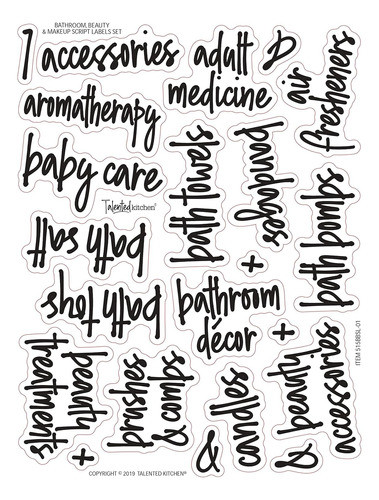 BATHROOM, BEAUTY
& MAKEUP SCRIPT LABELS SET
accessories
adult
medicine
air
fresheners
aromatherapy
baby care
Talented kitchen®
bath towels
bandages
bath bombs
+
bath salt
bath toys
bathroom
décor
+
beauty
treatments
+
brushes
& combs
&
candles
&
beauty
accessories
ITEM S15BBSL-01
COPYRIGHT © 2019 TALENTED KITCHEN®